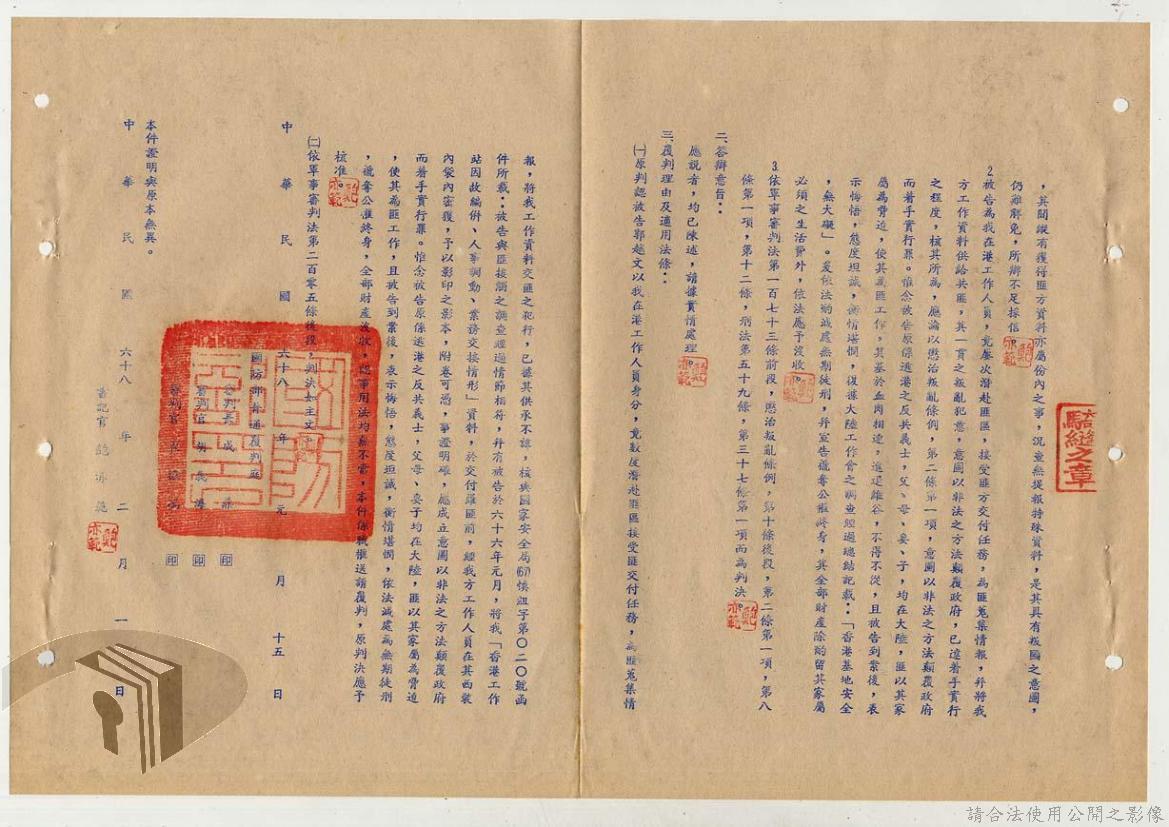 ，其間縱有獲得匪方資料亦屬份內之事，況並無提報特殊資料，是其具有叛國之意圖，
仍難辭免，所辯不足採信。
2被告為我在港工作人員，竟屢次潛赴匪區，接受匪方交付任務，為匪蒐集情報，并將我
方工作資料供給共匪，其一貫之叛亂犯意，意圖以非法之方法顛覆政府，已達着手實行
之程度，核其所為，應論以懲治叛亂條例，第二條第一項，意圖以非法之方法顛覆政府
而着手實行罪。惟念被告原係逃港之反共義士，父、母、妻、子，均在大陸，匪以其家
屬為脅迫，使其為匪工作，其基於血肉相連，進退維谷，不得不從，且被告到案後，表
示悔悟，態度坦誠，衡情堪憫，復據大陸工作會之調查經過總結記載：「香港基地安全
，無大礙」。爰依法酌減處無期徒刑，并宣告褫奪公權終身，其全部財產除酌留其家屬
必須之生活費外，依法應予沒收。
3.依軍事審判法第一百七十三條前段，懲治叛亂條例，第十條後段，第二條第一項，第八
條第一項，第十二條，刑法第五十九條，第三十七條第一項而為判決。
二、答辯意旨：
應說者，均已陳述，請據實情處理。
三、覆判理由及適用法條：
㈠原判認被告鄧越文以我在港工作人員身分，竟數度潛赴匪區接受匪交付任務，為匪蒐集情
報，將我工作資料交匪之犯行，已據其供承不諱，核與國家安全局㈥慎誼字第〇二〇號函
件所載：被告與匪接觸之調查經過情節相符，幷有被告於六十六年元月，將我「香港工作
站因故編併、人事調動、業務交接情形」資料，於交付羅匪前，經我方工作人員在其西裝
內袋內密獲，予以影印之影本，附卷可憑，事證明確，應成立意圖以非法之方法顛覆政府
而着手實行罪。惟念被告原係逃港之反共義士，父母、妻子均在大陸，匪以其家屬為脅迫
，使其為匪工作，且被告到案後，表示悔悟，態度坦誠，衡情堪憫，依法減處為無期徒刑
，褫奪公權終身，全部財產沒收，認事用法均無不當，本件依職權送請覆判，原判決應予
核准。
㈡依軍事審判法第二百零五條後段，判決如主文。
中華民國六十八年元月十五日
國防部普通覆判庭
審判長 成
審判官
審判官
印
印
印
本件證明與原本無異。
中華民國六十八年二月一日
書記官
騎縫之章
請合法使用公開之影像